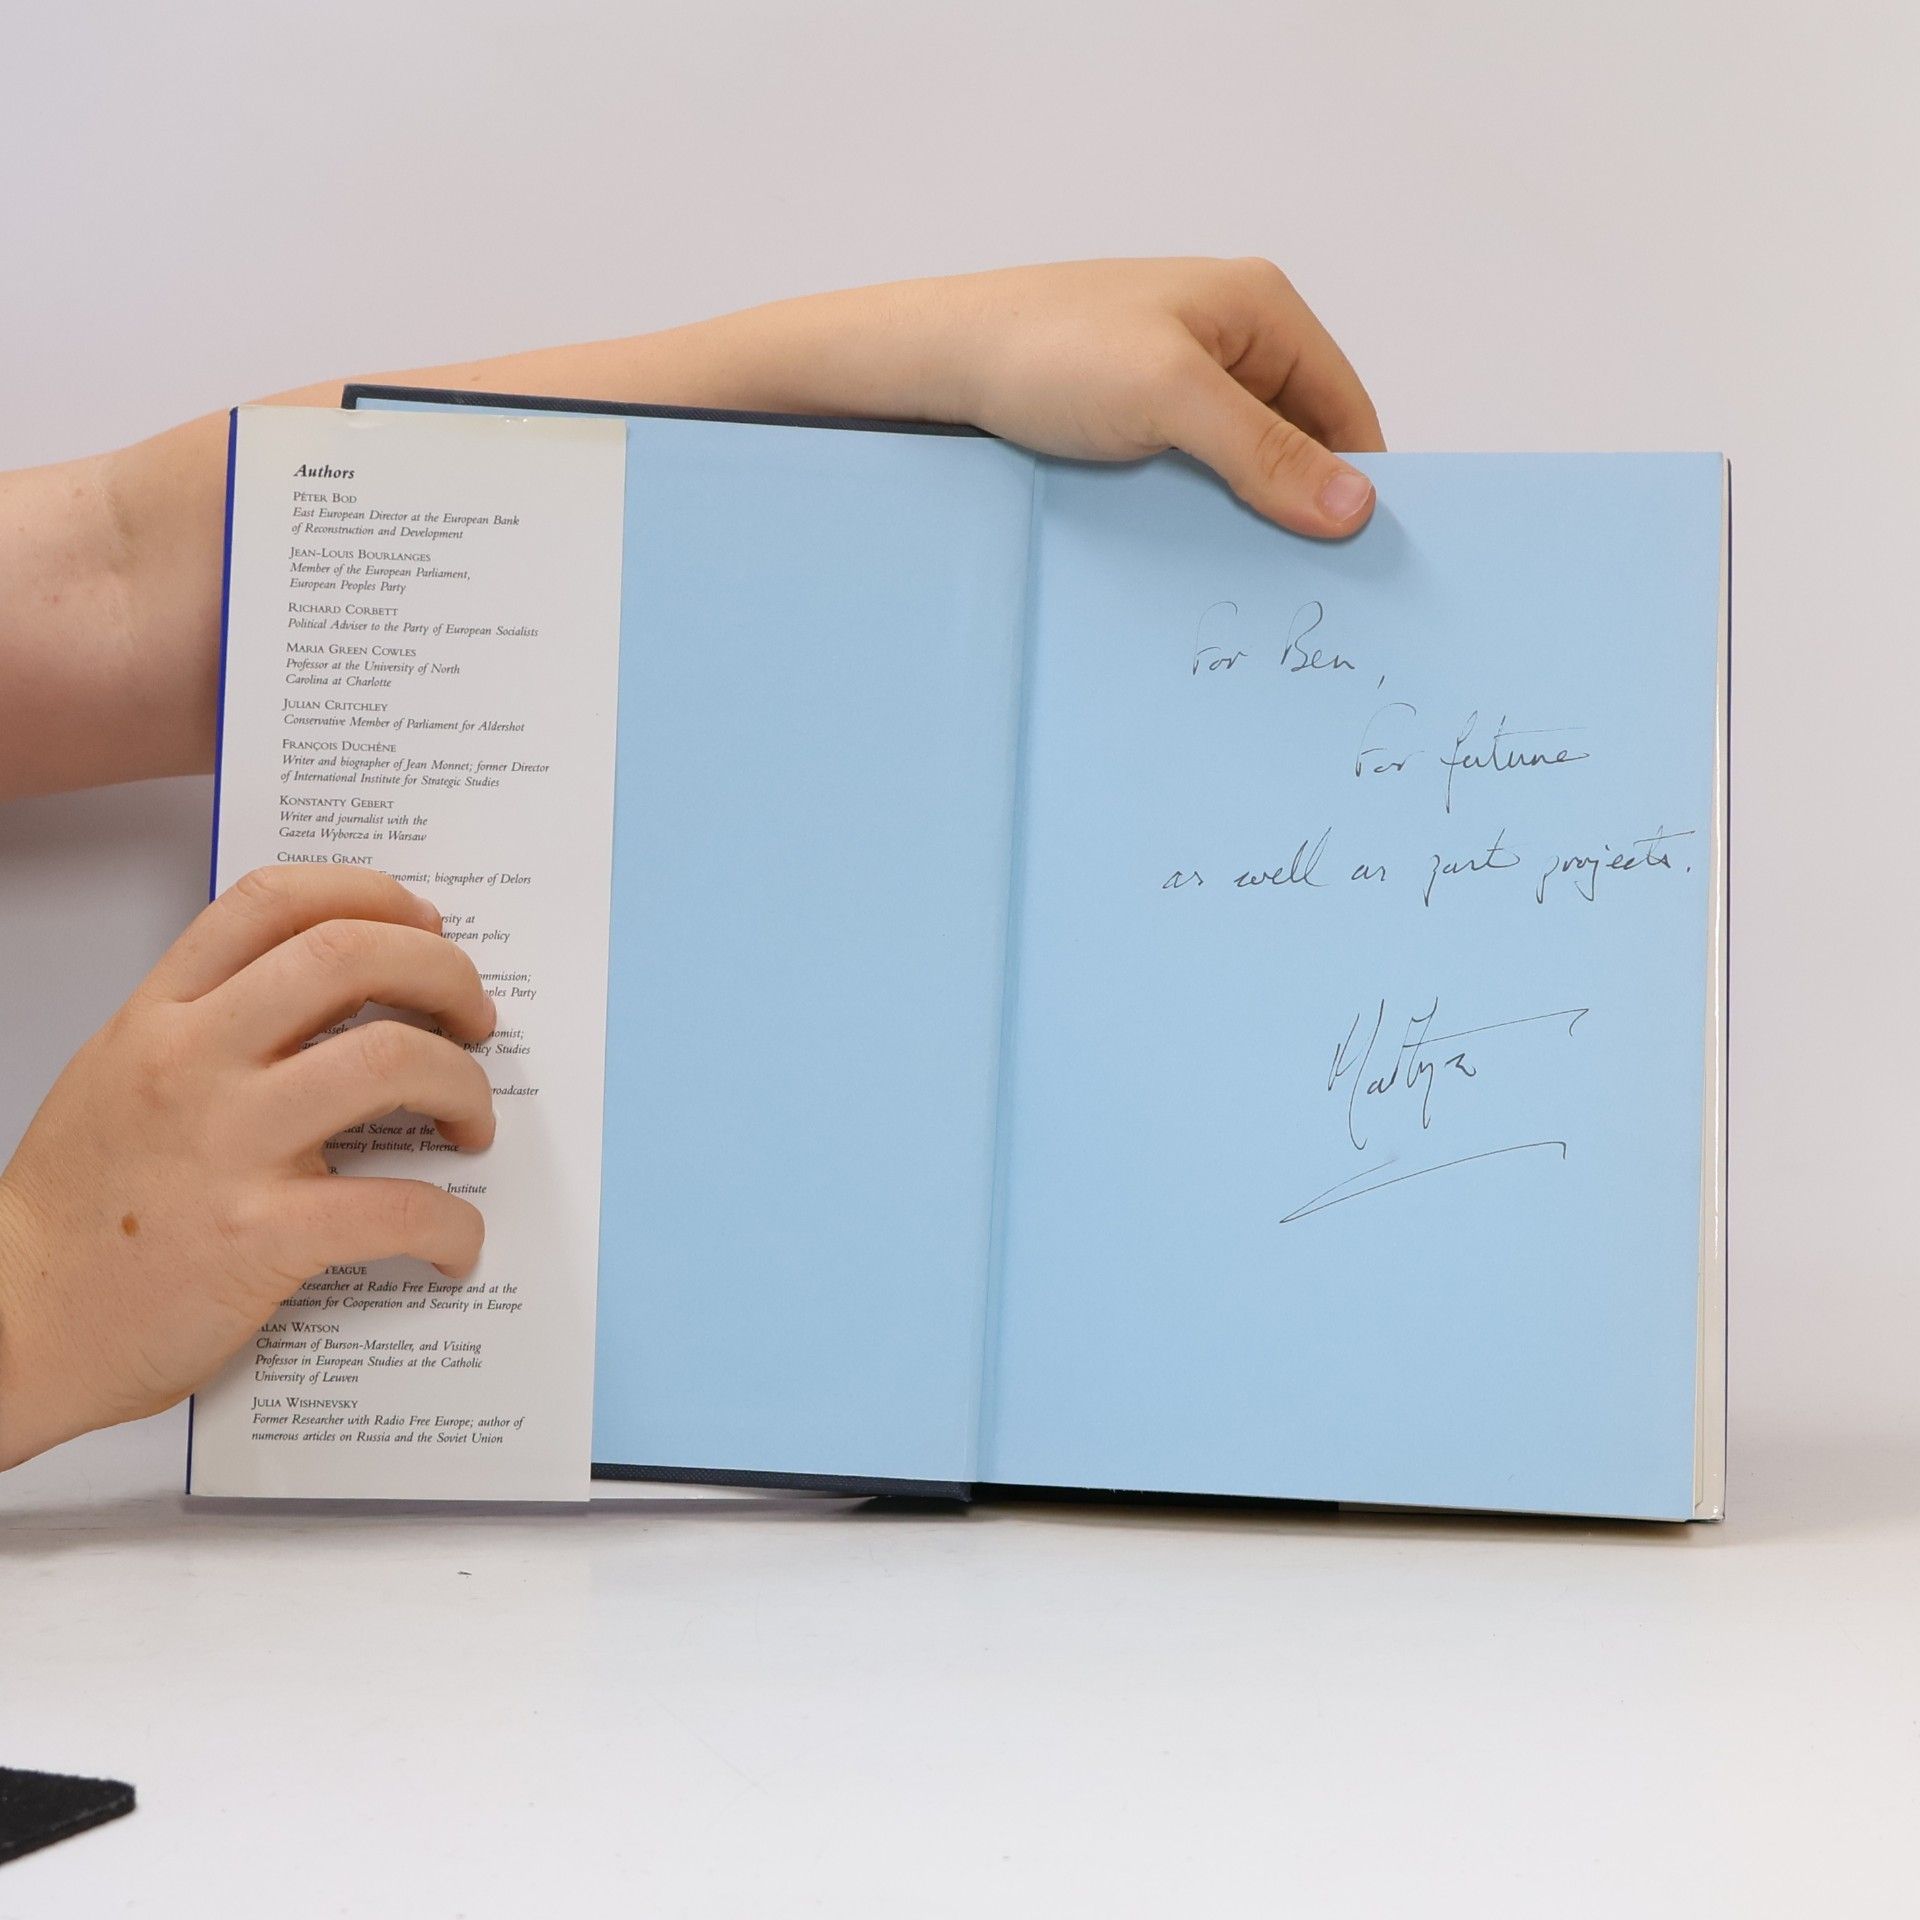 Authors
PÉTER BOD
East European Director at the European Bank
of Reconstruction and Development
JEAN-LOUIS BOURLANGES
Member of the European Parliament,
European Peoples Party
RICHARD CORBETT
Political Adviser to the Party of European Socialists
MARIA GREEN COWLES
Professor at the University of North
Carolina at Charlotte
JULIAN CRITCHLEY
Conservative Member of Parliament for Aldershot
FRANÇOIS DUCHÊNE
Writer and biographer of Jean Monnet; former Director
of International Institute for Strategic Studies
KONSTANTY GEBERT
Writer and journalist with the
Gazeta Wyborcza in Warsaw
CHARLES GRANT
biographer of Delors
at
policy
Party
Policy Studies
Science at the
Institute, Florence
Institute
Researcher at Radio Free Europe and at the
for Cooperation and Security in Europe
ALAN WATSON
Chairman of Burson-Marsteller, and Visiting
Professor in European Studies at the Catholic
University of Leuven
JULIA WISHNEVSKY
Former Researcher with Radio Free Europe; author of
numerous articles on Russia and the Soviet Union
For Ben,
For future
as well as past projects.
Martyn